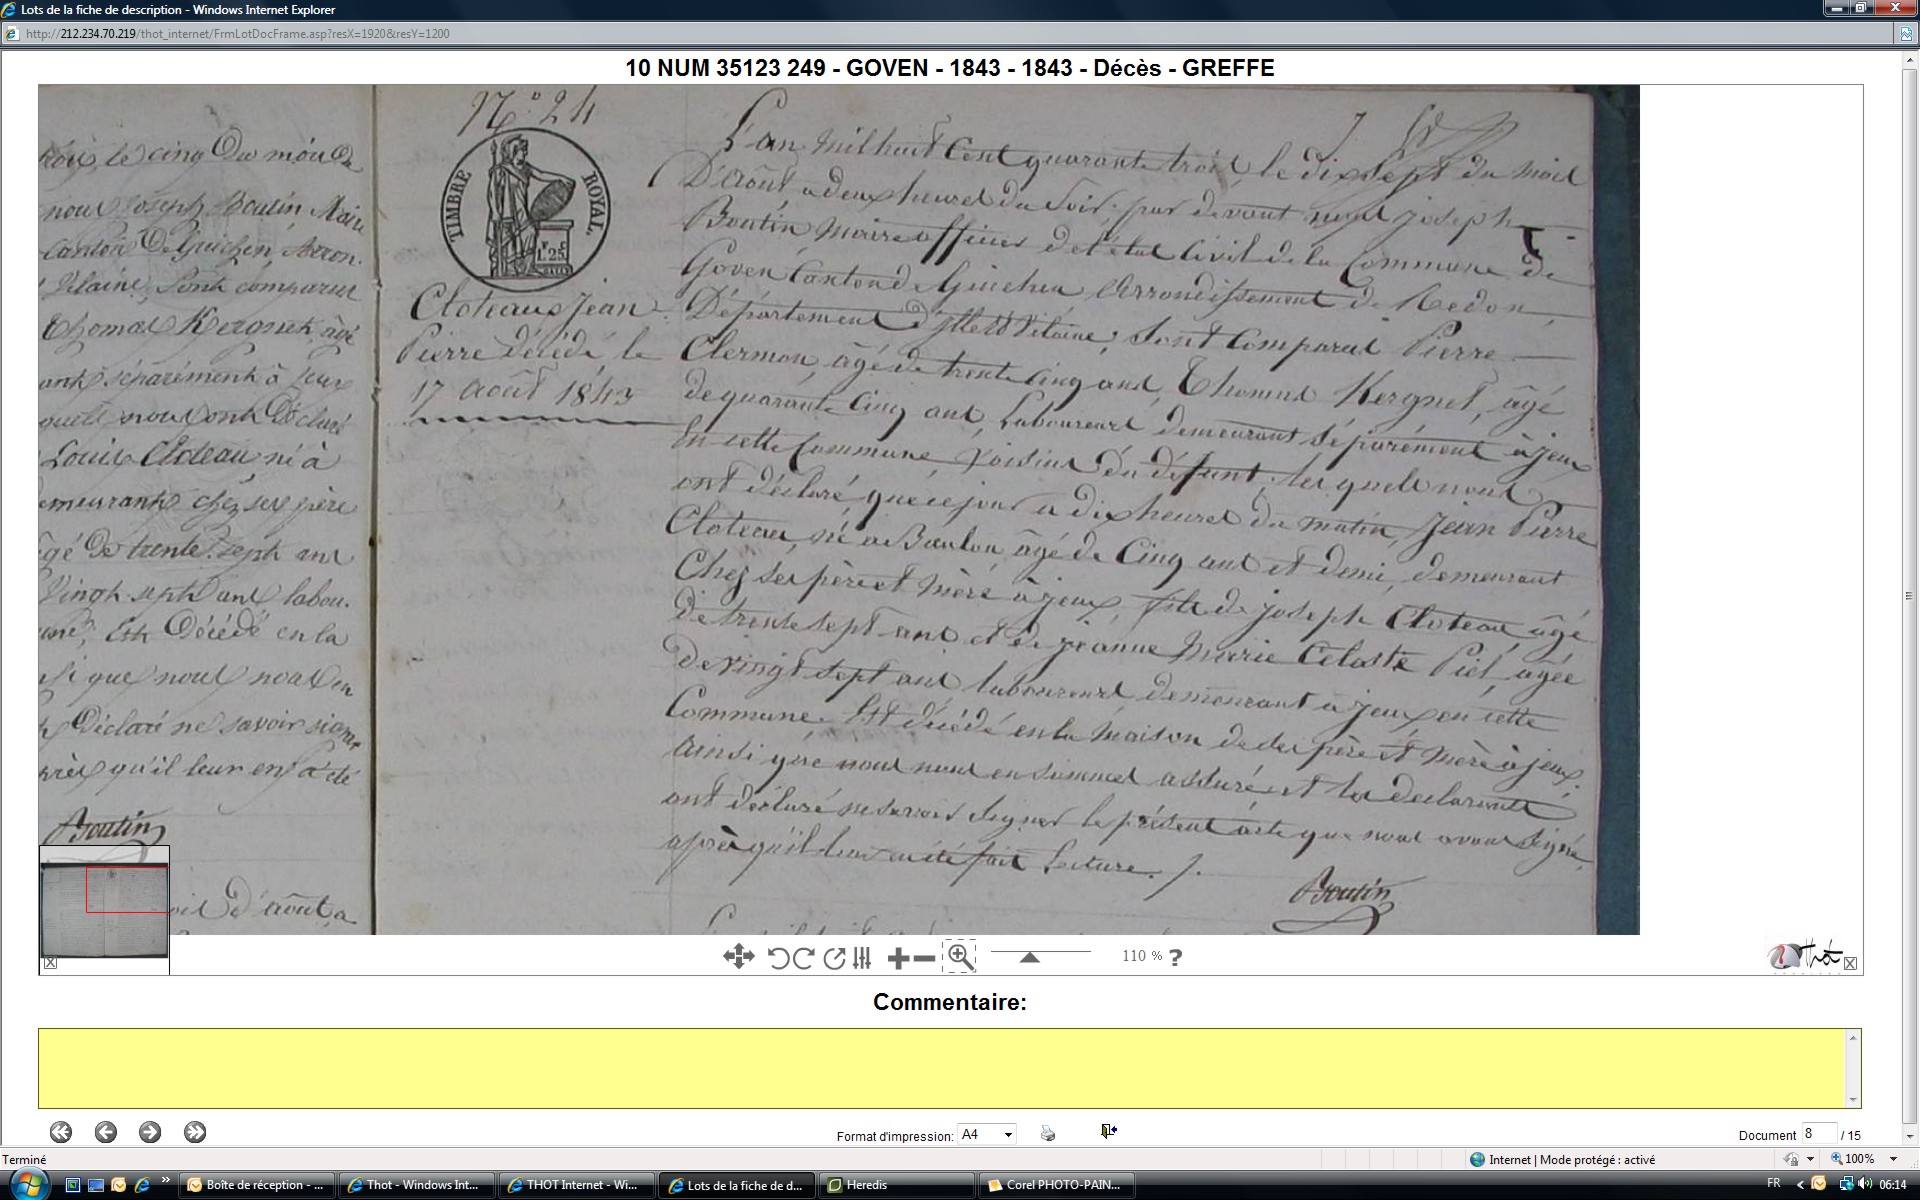 Lots de la fiche de description - Windows Internet Explorer
http://212.234.70.219/thot_internet/FrmLotDocFrame.asp?resX=1920&resY=1200
10 NUM 35123 249 - GOVEN - 1843 - 1843 - Décès - GREFFE
le cinq du mois de
nous Joseph Boutin Maire
Canton de Guichen Arron.
Vilaine, sont comparus
Thomas Kergnet, âgé
séparément à Jeux
nous ont déclaré
Louis Cloteau né à
demeurant chez ses père
âgé de trente sept ans
Vingt sept ans labou.
Est Décédé en la
que nous nous en
Déclaré ne savoir signer
qu'il leur en a été
Boutin
d'août, a
N.° 24
TIMBRE ROYAL.
F. C.
1. 25.
Cloteaux Jean
Pierre décédé le
17 août 1843
L'an Mil huit Cent quarante trois, le dix sept du mois
D'août, a deux heures du Soir, par devant nous Joseph
Boutin Maire officier de l'état Civil de la Commune de
Goven Canton de Guichen Arrondissement de Redon,
Département d'Ille et Vilaine, Sont Comparus Pierre
Clermon, âgé de trente cinq ans, Thomas Kergnet, âgé
de quarante Cinq ans, Laboureurs demeurant séparément à jeux
En cette Commune, Voisins du défunt, les quels nous
ont déclaré que ce jour a dix heures du matin, Jean Pierre
Cloteau, né a Baulon âgé de Cinq ans et demi, demeurant
Chez ses père et mère à jeux, fils de joseph Cloteau, âgé
De trente sept ans et de jeanne Marie Celeste Piel, agée
De vingt sept ans laboureurs demeurant à jeux, en cette
Commune. Est décédé en la Maison de ses père et mère à jeux,
ainsi que nous nous en sommes assuré et les declarants
ont déclaré ne savoir signer le présent acte que nous avons signé,
après qu'il leur en a été fait Lecture. /.
Boutin
110 % ?
Thot
Commentaire:
Format d'impression: A4
Document 8 / 15
Terminé
Internet | Mode protégé : activé
100%
Boîte de réception - ...
Thot - Windows Int...
THOT Internet - Wi...
Lots de la fiche de d...
Heredis
Corel PHOTO-PAIN...
FR
06:14